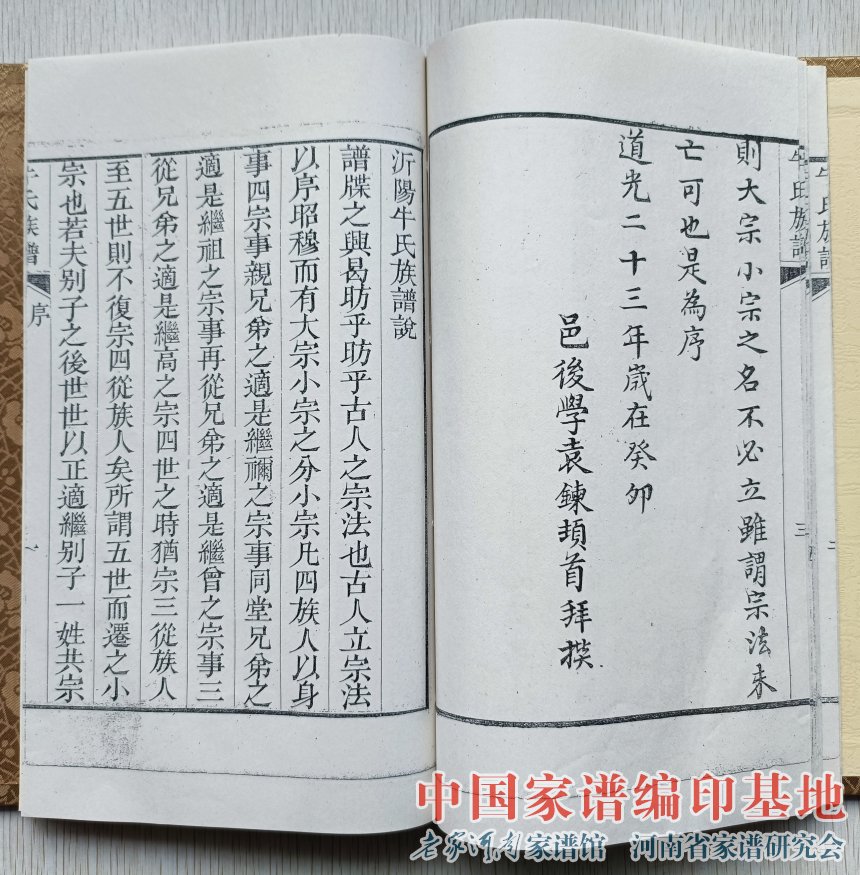 則大宗小宗之名不必立雖謂宗法未
亡可也是為序
道光二十三年歲在癸卯
邑後學袁鍊頓首拜撰
沂陽牛氏族譜說
譜牒之興曷昉乎昉乎古人之宗法也古人立宗法
以序昭穆而有大宗小宗之分小宗凡四族人以身
事四宗事親兄弟之適是繼禰之宗事同堂兄弟之
適是繼祖之宗事再從兄弟之適是繼曾之宗事三
從兄弟之適是繼高之宗四世之時猶宗三從族人
至五世則不復宗四從族人矣所謂五世而遷之小
宗也若夫別子之後世世以正適繼別子一姓共宗
牛氏族譜
序
一
牛氏族譜
三
牛氏族譜
二
中国家谱编印基地
老家河南家谱馆 河南省家谱研究会